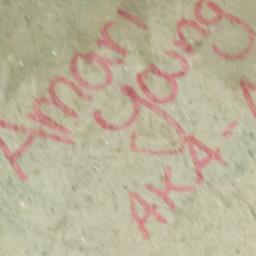 Amari
Young
AKA-